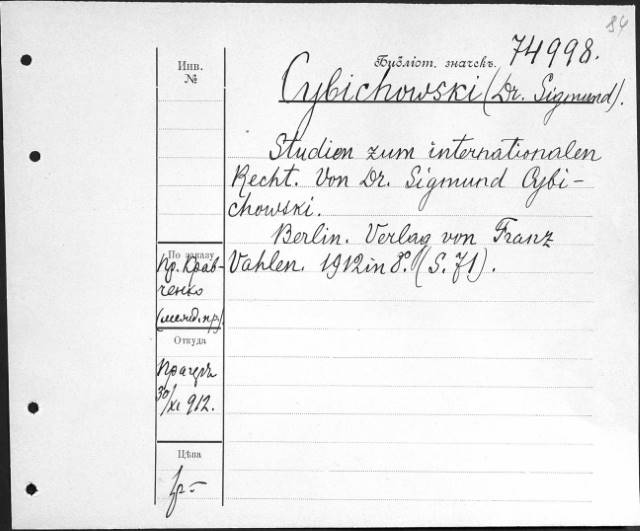 84
Библіот. значекъ. 74998.
Инв.
№
Cybichowski (Dr. Sigmund).
Studien zum internationalen
Recht. Von Dr. Sigmund Cybi-
chowski.
Berlin. Verlag von Franz
Vahlen. 1912 in 8°. (S. 71).
По заказу
Пр. Крав-
ченко
(межд. пр.)
Откуда
30/XI 912.
Цѣна